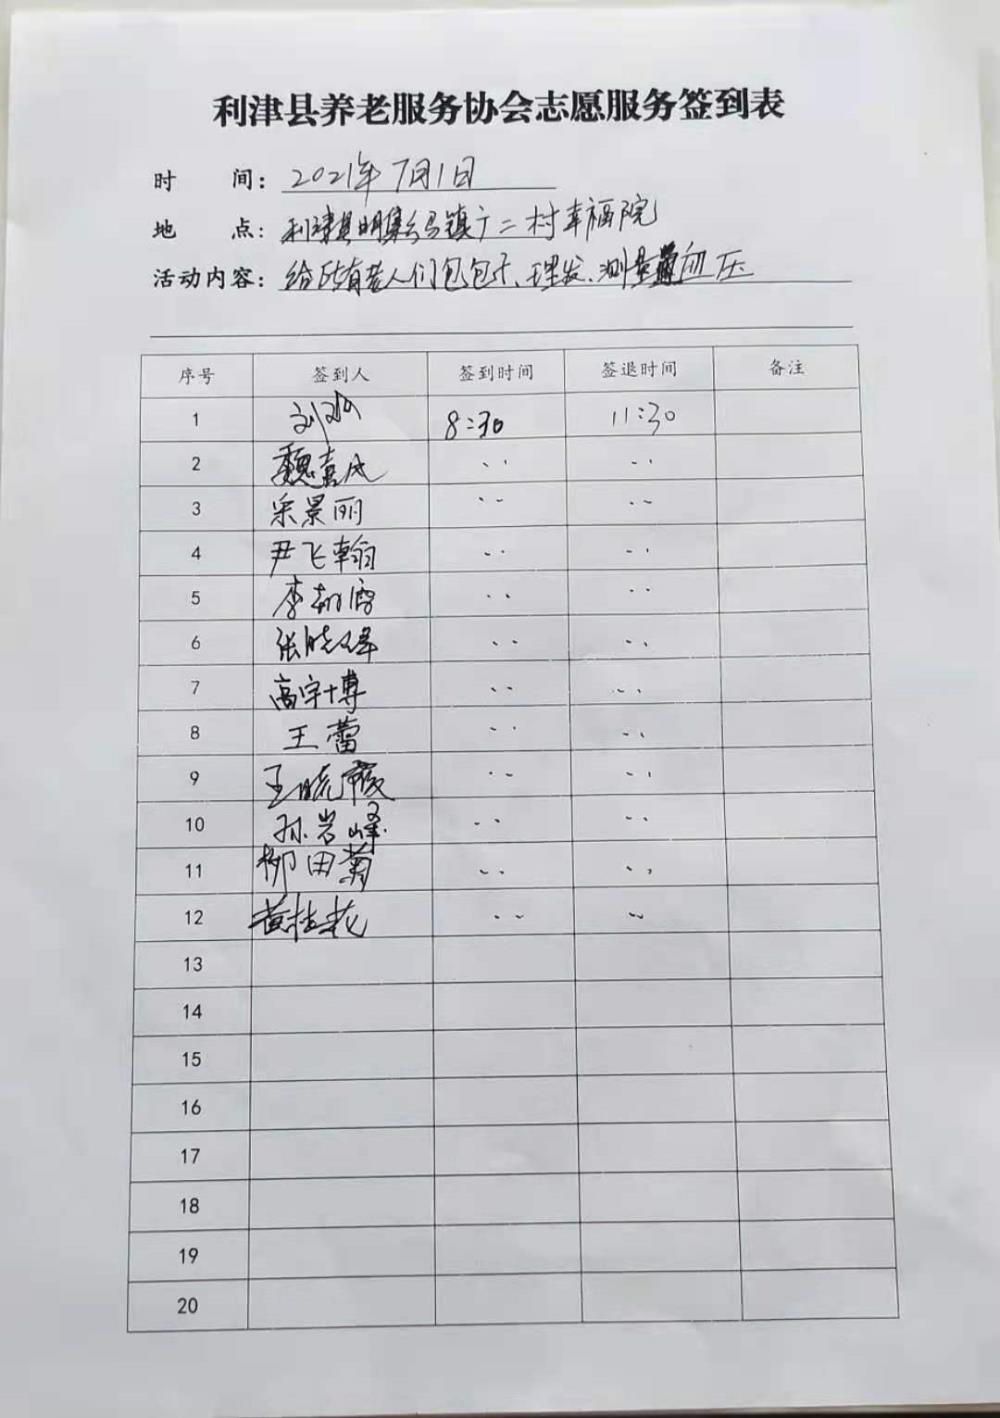 利津县养老服务协会志愿服务签到表
时 间: 2021年7月1日
地 点: 利津县明集乡马镇广二村幸福院
活动内容: 给所有老人们包包子、理发、测量血压
序号 签到人 签到时间 签退时间 备注
1 刘 8:30 11:30
2 魏嘉成 〃 〃
3 宋景丽 〃 〃
4 尹飞翰 〃 〃
5 李 〃 〃
6 张晓峰 〃 〃
7 高宇博 〃 〃
8 王蕾 〃 〃
9 王晓霞 〃 〃
10 孙岩峰 〃 〃
11 柳田菊 〃 〃
12 黄桂花 〃 〃
13
14
15
16
17
18
19
20